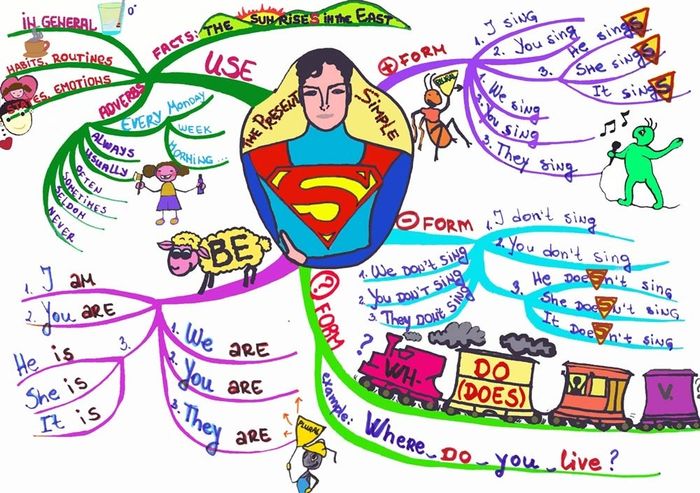 The Present Simple
S
USE
IN GENERAL
0°
HABITS, ROUTINGS
STATES, EMOTIONS
FACTS: THE SUN RISES in the EAST
ADVERBS
EVERY Monday
WEEK
MORNING...
ALWAYS
USUALLY
OFTEN
SOMETIMES
SELDOM
NEVER
+ FORM
1. I sing
2. You sing
3.
He singS
She singS
It singS
PLURAL
1. We sing
2. You sing
3. They sing
- FORM
1. I don't sing
2. You don't sing
3.
He DOESn't sing
She DOESn't SING
It DOESn't SING
1. We DON'T SING
2. You DON'T SING
3. They DON'T SING
BE
1. I AM
2. You ARE
3.
He is
She is
It is
1. We ARE
2. You ARE
3. They ARE
PLURAL
? FORM
?
WH-
DO
(DOES)
V.
example: Where DO you live?